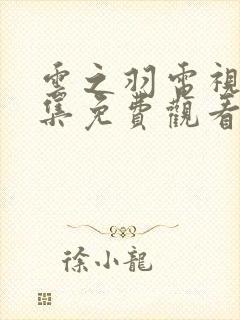 雲之羽電視
集免費觀看
徐小龍